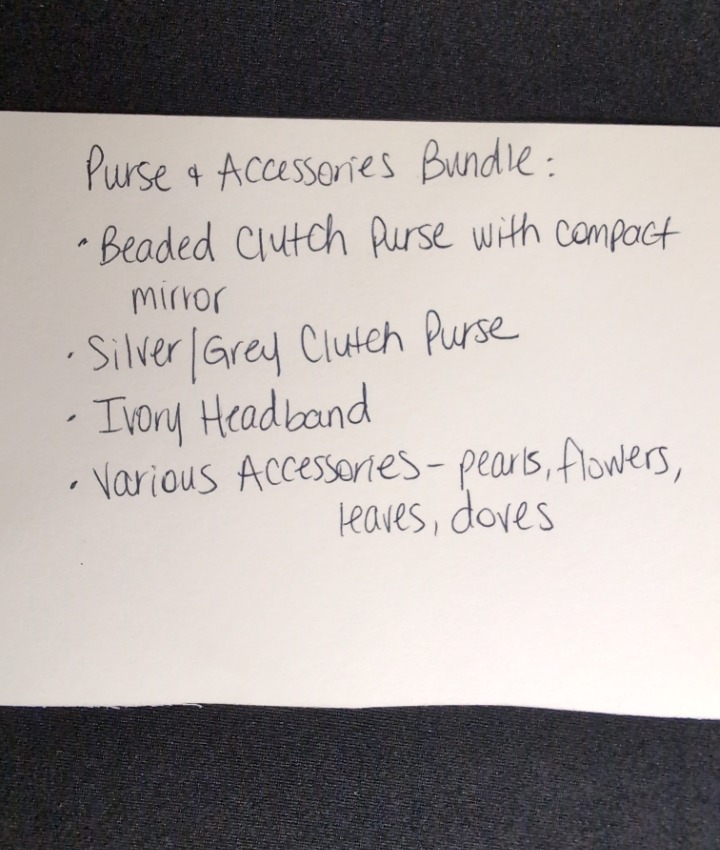 Purse & Accessories Bundle:
• Beaded Clutch Purse with compact
mirror
• Silver/Grey Clutch Purse
• Ivory Headband
• Various Accessories - pearls, flowers,
leaves, doves